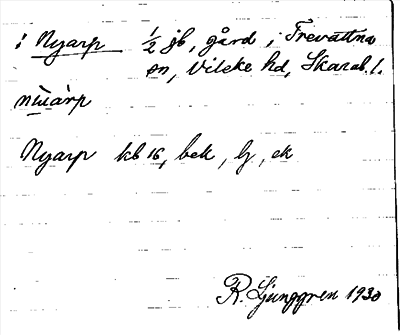 : Nyarp ½ jb, gård, i Trevattna
sn, Vilske hd, Skarab. l.
nẁàrp
Nyarp kb 16, bek, lj, ek
R. Ljunggren 1930